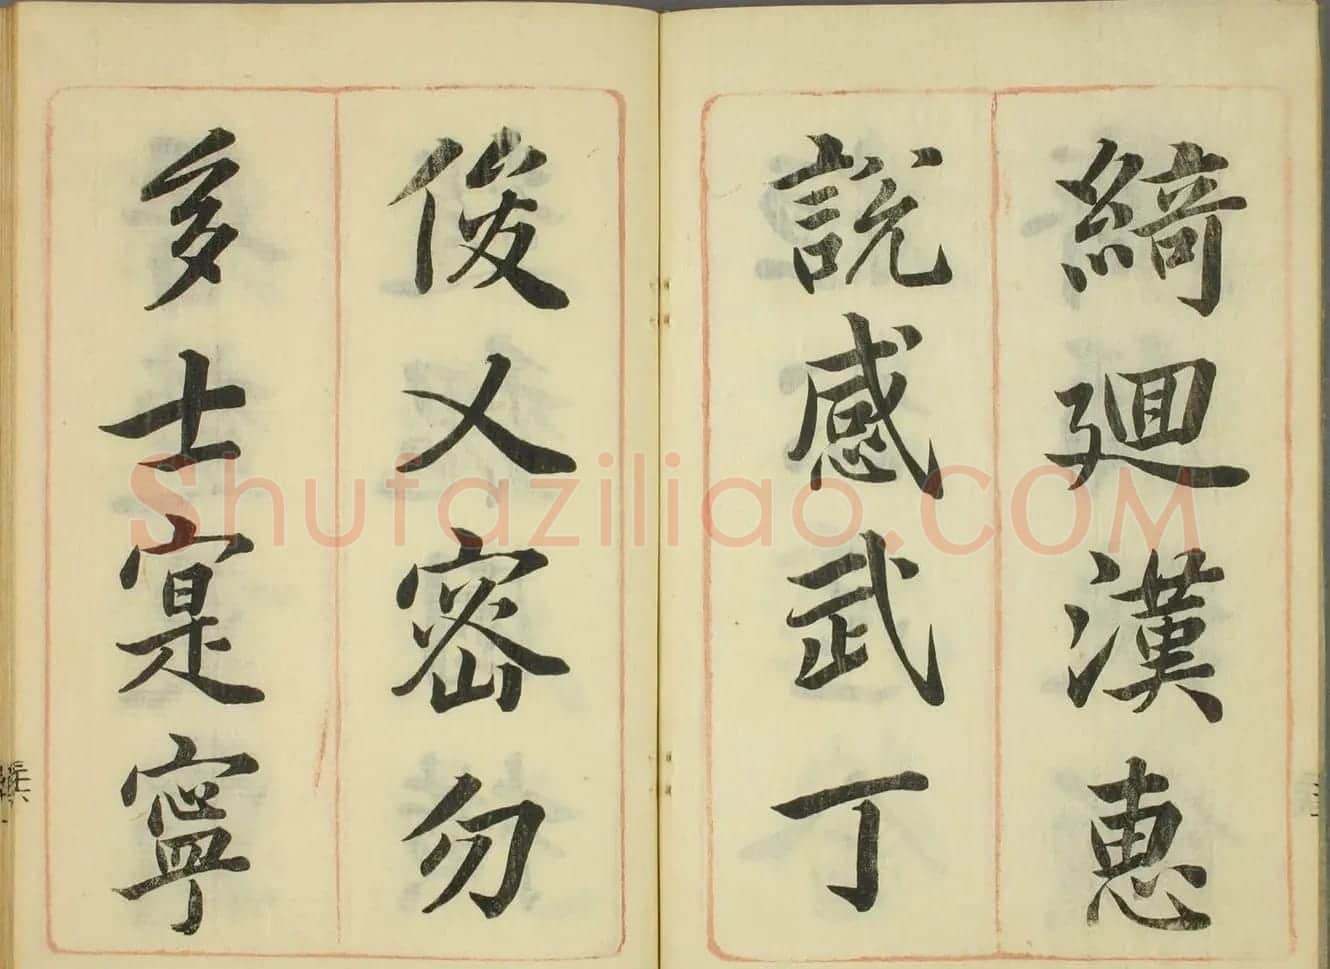 綺廻漢恵
説感武丁
俊乂密勿
多士寔寧
Shufaziliao.COM